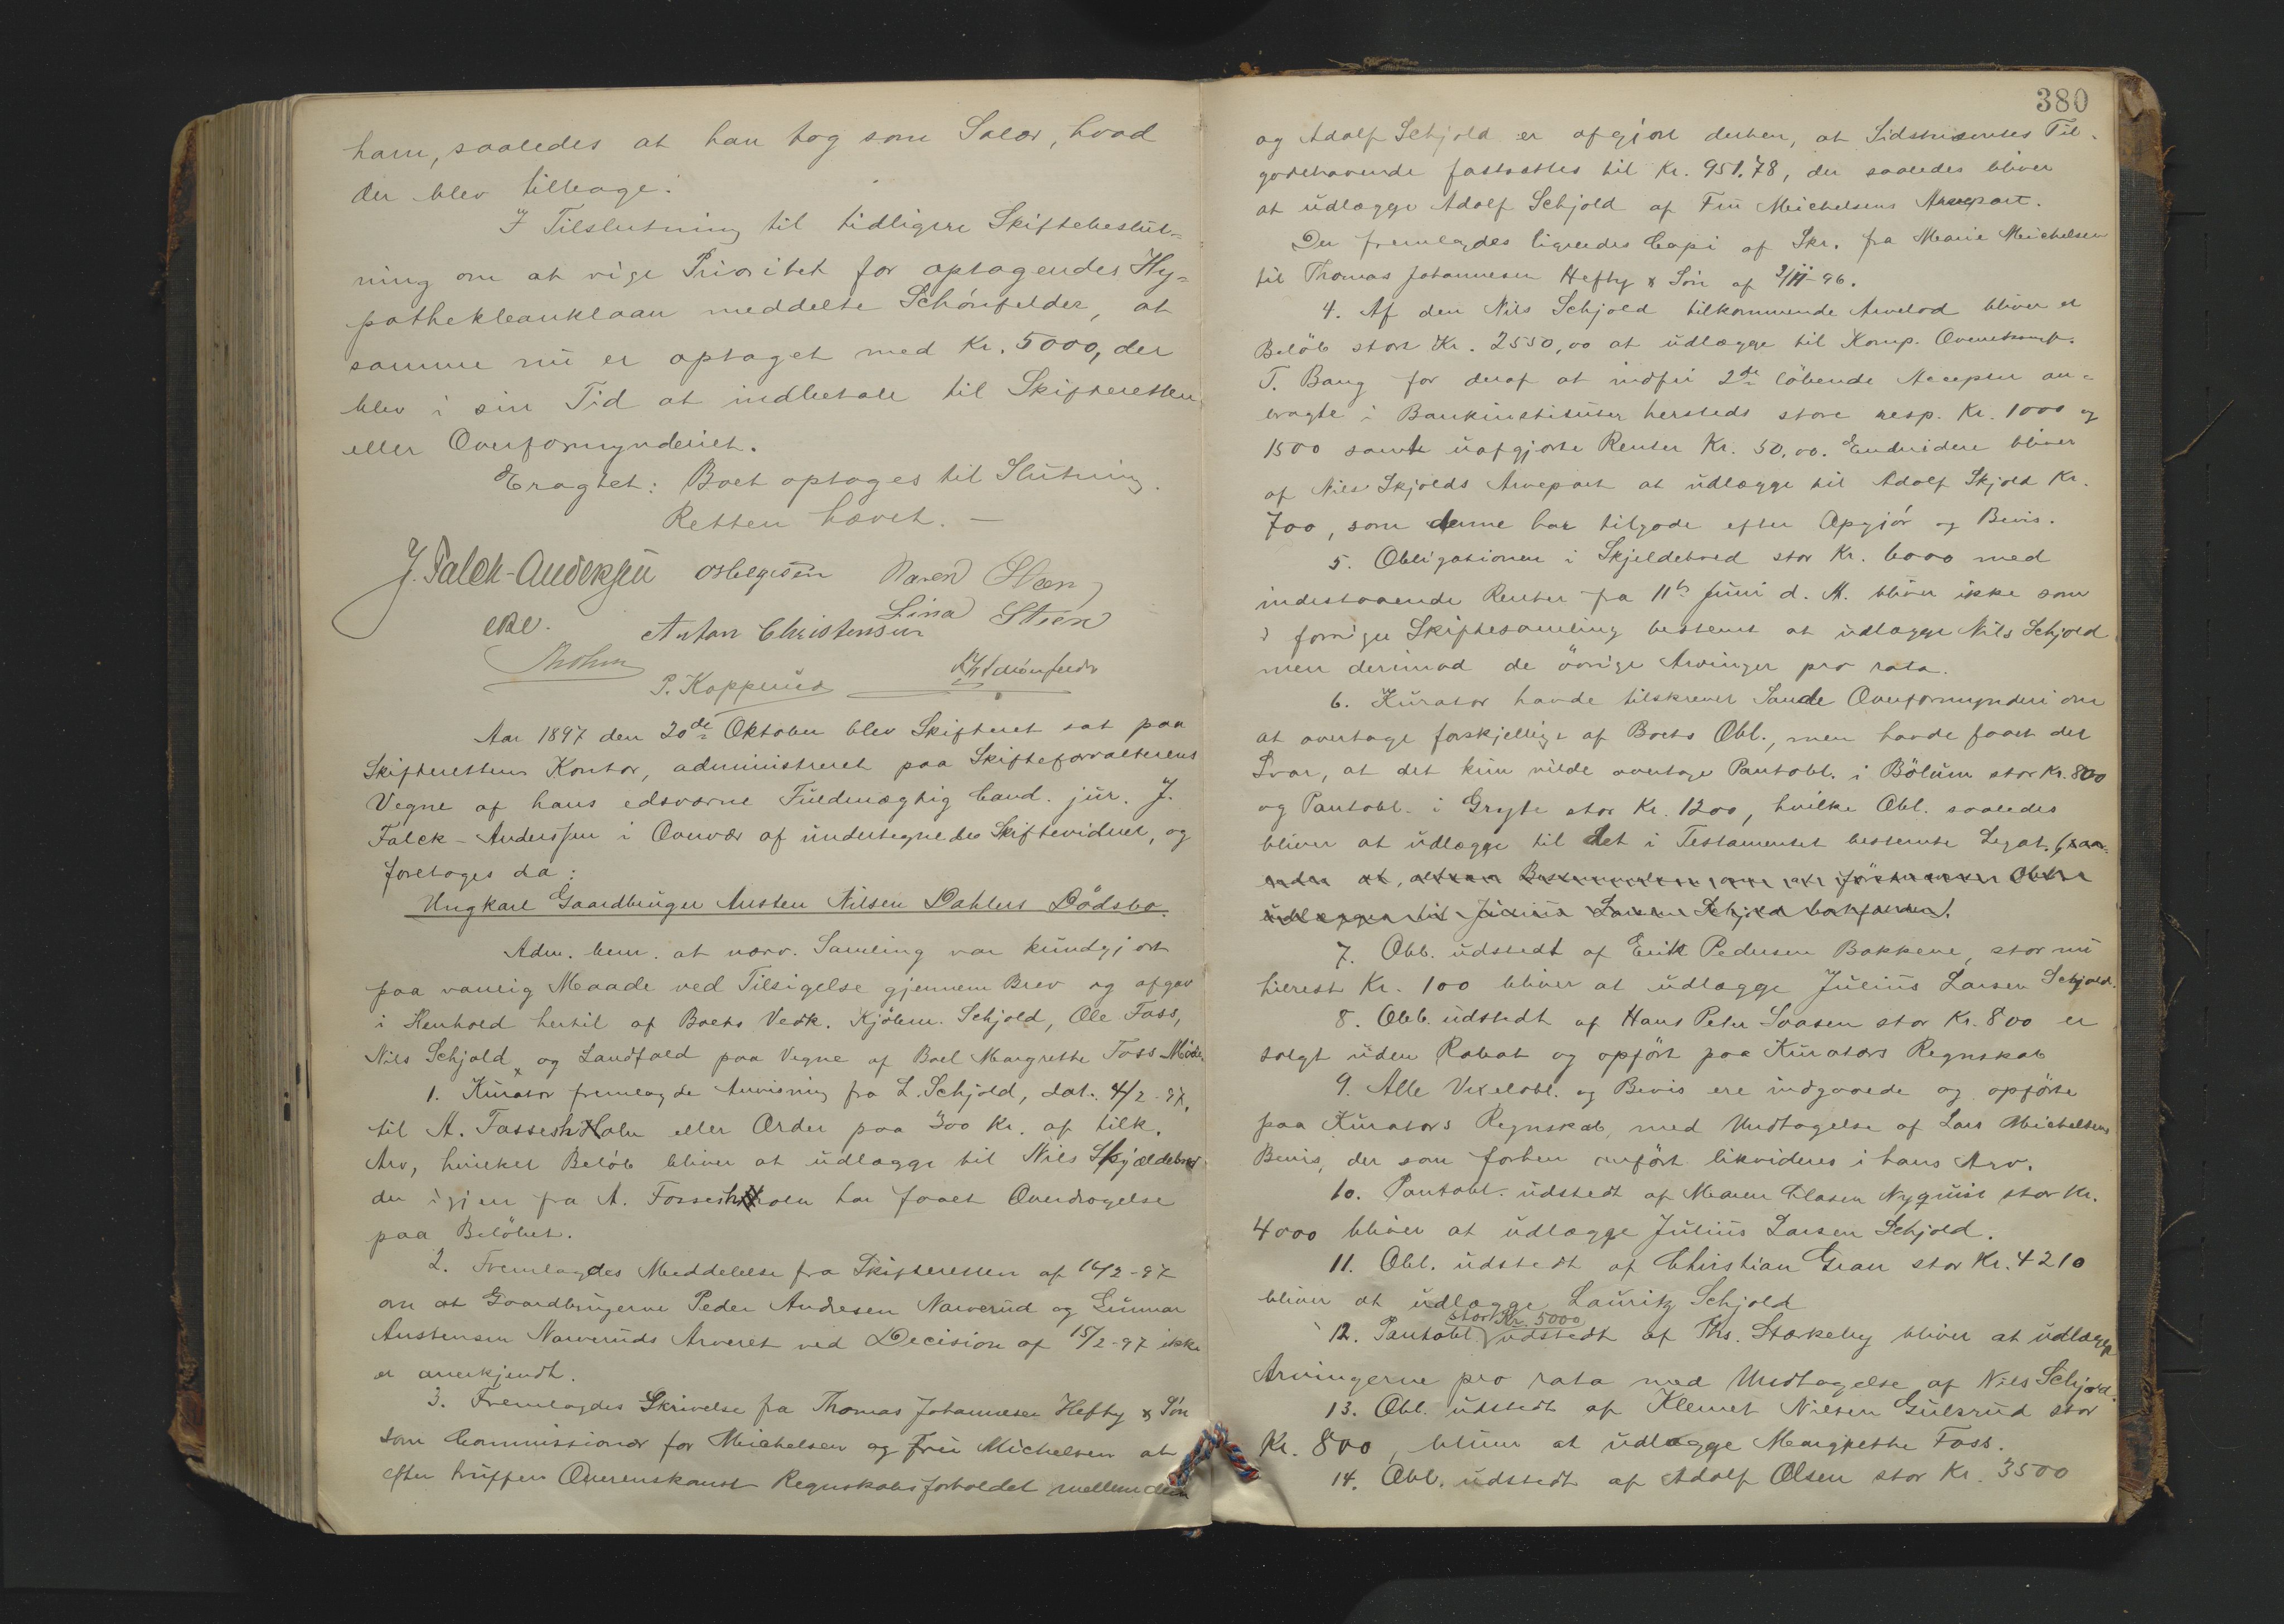 ham, saaledes at han tog som Salær, hvad
der blev tilbage.
I Tilslutning til tidligere Skiftebeslut-
ning om at vige Prioritet for optagendes Hy-
pothekbanklaan meddelte Schönfelder, at
samme nu er optaget med Kr. 5000, der
blev i sin Tid at indbetale til Skifteretten
eller Overformynderiet.
Eragtet: Boet optages til Slutning.
Retten hævet. —
J. Falck-Anderssen O Helgesen Karen Steen
Lina Steen
Anton Christensen
P. Kopperud
Aar 1897 den 20de Oktober blev Skifteret sat paa
Skifterettens Kontor, administreret paa Skifteforvalterens
Vegne af hans edsvorne Fuldmægtig Cand. jur. J.
Falck-Anderssen i Overvær af undertegnedes Skiftevidner, og
foretoges da:
Ungkarl Gaardbruger Austen Nilsen Dahlers Dödsbo.
Adm. bem. at nærv. Samling var kundgjort
paa vanlig Maade ved Tilsigelse gjennem Brev og afgav
i Henhold hertil af Boets Vedk. Kjöbm. Schjold, Ole Foss,
Nils Schjold, og Landfald paa Vegne af Boel Margrethe Foss Möde.
1. Kurator fremlagde Anvisning fra L. Schjold, dat. 4/2-97,
til A. Fossesholm eller Order paa 300 Kr. af tilk.
Arv, hvilket Belöb bliver at udlægge til Nils Skjældebred
der igjen fra A. Fossesholm har faaet Overdragelse
paa Belöbet.
2. Fremlagdes Meddelelse fra Skifteretten af 16/2-97
om at Gaardbrugerne Peder Andresen Narverud og Gunnar
Austensen Narveruds Arveret ved Decision af 15/2-97 ikke
er anerkjendt.
3. Fremlagdes Skrivelse fra Thomas Johannesen Hefty & Sön
som Commissionær for Michelsen og Fru Michelsen at
efter truffen Overenskomst Regnskabsforholdet mellem dem
380
og Adolf Schjold er afgjort derhen, at Sidstnævntes Til-
godehavende fastsættes til Kr. 951.78, der saaledes bliver
at udlægge Adolf Schjold af Fru Meichelsens Arvepart.
Der fremlagdes ligeledes Copi af Skr. fra Marie Meichelsen
til Thomas Johannesen Hefty & Sön af 3/11-96.
4. Af den Nils Schjold tilkommende Arvelod bliver et
Belöb stort Kr. 2550,00 at udlægge til Komp. Overensk.
T. Bang for deraf at indfri 2de löbende Accepter an-
bragte i Bankinstituter hersteds store resp. Kr. 1000 og
1500 samt uafgjorte Renter Kr. 50,00. Endvidere bliver
af Nils Skjolds Arvepart at udlægge til Adolf Skjold Kr.
700, som denne har tilgode efter Opgjör og Bevis.
5. Obligationen i Skjeldebred stor Kr. 6000 med
indestaaende Renter fra 11te Juni d. A. bliver ikke som
i forrige Skiftesamling bestemt at udlægge Nils Schjold
men derimod de övrige Arvinger pro rata.
6. Kurator havde tilskrevet Sande Overformynderi om
at overtage forskjellige af Boets Obl., men havde faaet det
Svar, at det kun vilde overtage Pantobl. i Bölum stor Kr. 800
og Pantobl. i Gryte stor Kr. 1200, hvilke Obl. saaledes
bliver at udlægge til det i Testamentet bestemte Legat.
7. Obl. udstedt af Erik Pedersen Bakkene, stor nu
tilrest Kr. 100 bliver at udlægge Julius Larsen Schjold.
8. Obl. udstedt af Hans Peter Soasen stor Kr. 800 er
solgt uden Rabat og opfört paa Kurators Regnskab
9. Alle Vexelobl. og Bevis ere indgaaede og opförte
paa Kurators Regnskab, med Undtagelse af Lars Michelsens
Bevis, der som forhen anfört likvideres i hans Arv.
10. Pantobl. udstedt af Maren Clasen Nyquist stor Kr.
4000 bliver at udlægge Julius Larsen Schjold.
11. Obl. udstedt af Christian Gran stor Kr. 4210
bliver at udlægge Lauritz Schjold
stor Kr. 5000
12. Pantobl. udstedt af Ths. Stakeby bliver at udlægge
Arvingerne pro rata med Undtagelse af Nils Schjold.
13. Obl. udstedt af Klemet Nilsen Gulsrud stor
Kr. 800, bliver at udlægge Margrethe Foss.
14. Obl. udstedt af Adolf Olsen stor Kr. 3500